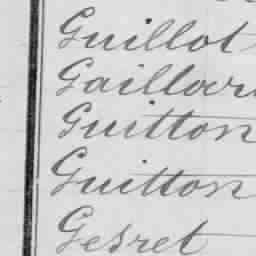 Guillot
Gaillar
Guitton
Guitton
Gesret